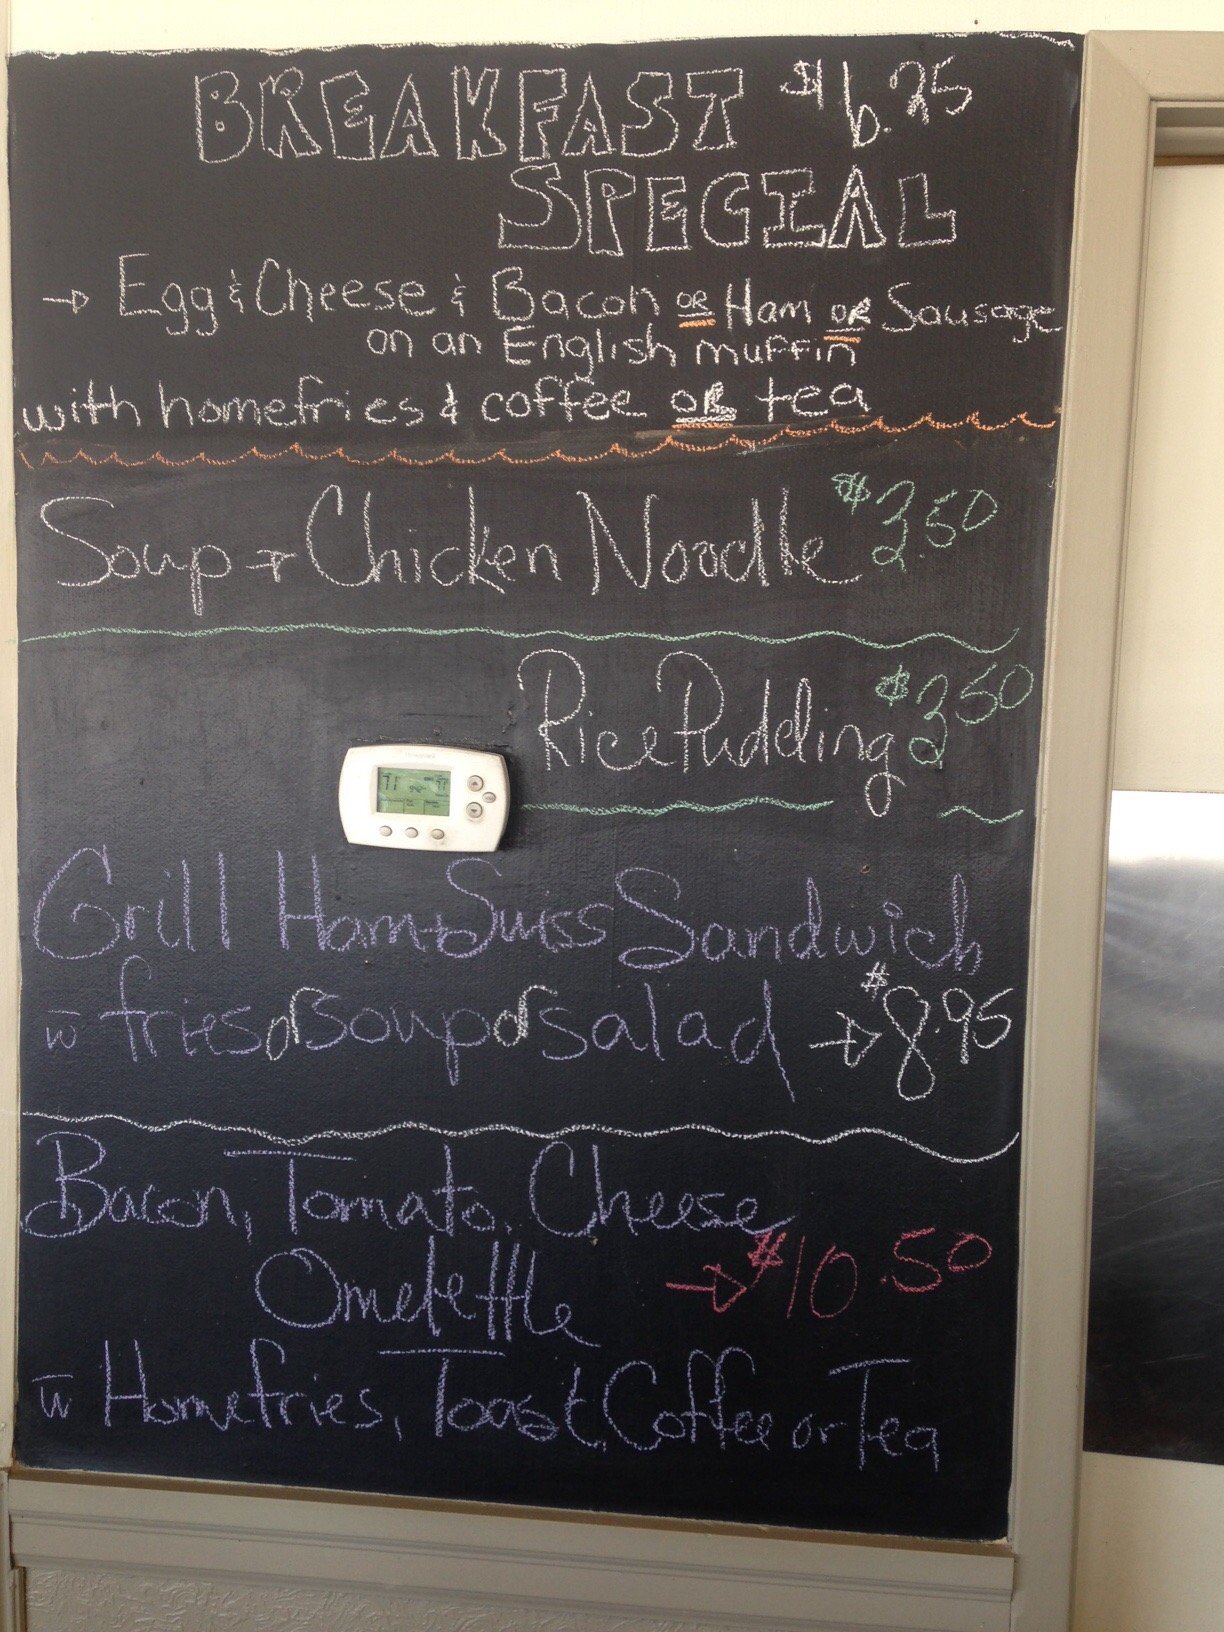 BREAKFAST $6.95
SPECIAL
→ Egg & Cheese & Bacon OR Ham OR Sausage
on an English muffin
with homefries & coffee OR tea
Soup → Chicken Noodle $2.50
Rice Pudding $2.50
Grill Ham & Swiss Sandwich
w fries or soup or salad → $8.95
Bacon, Tomato, Cheese
Omelette → $10.50
w Homefries, Toast, Coffee or Tea